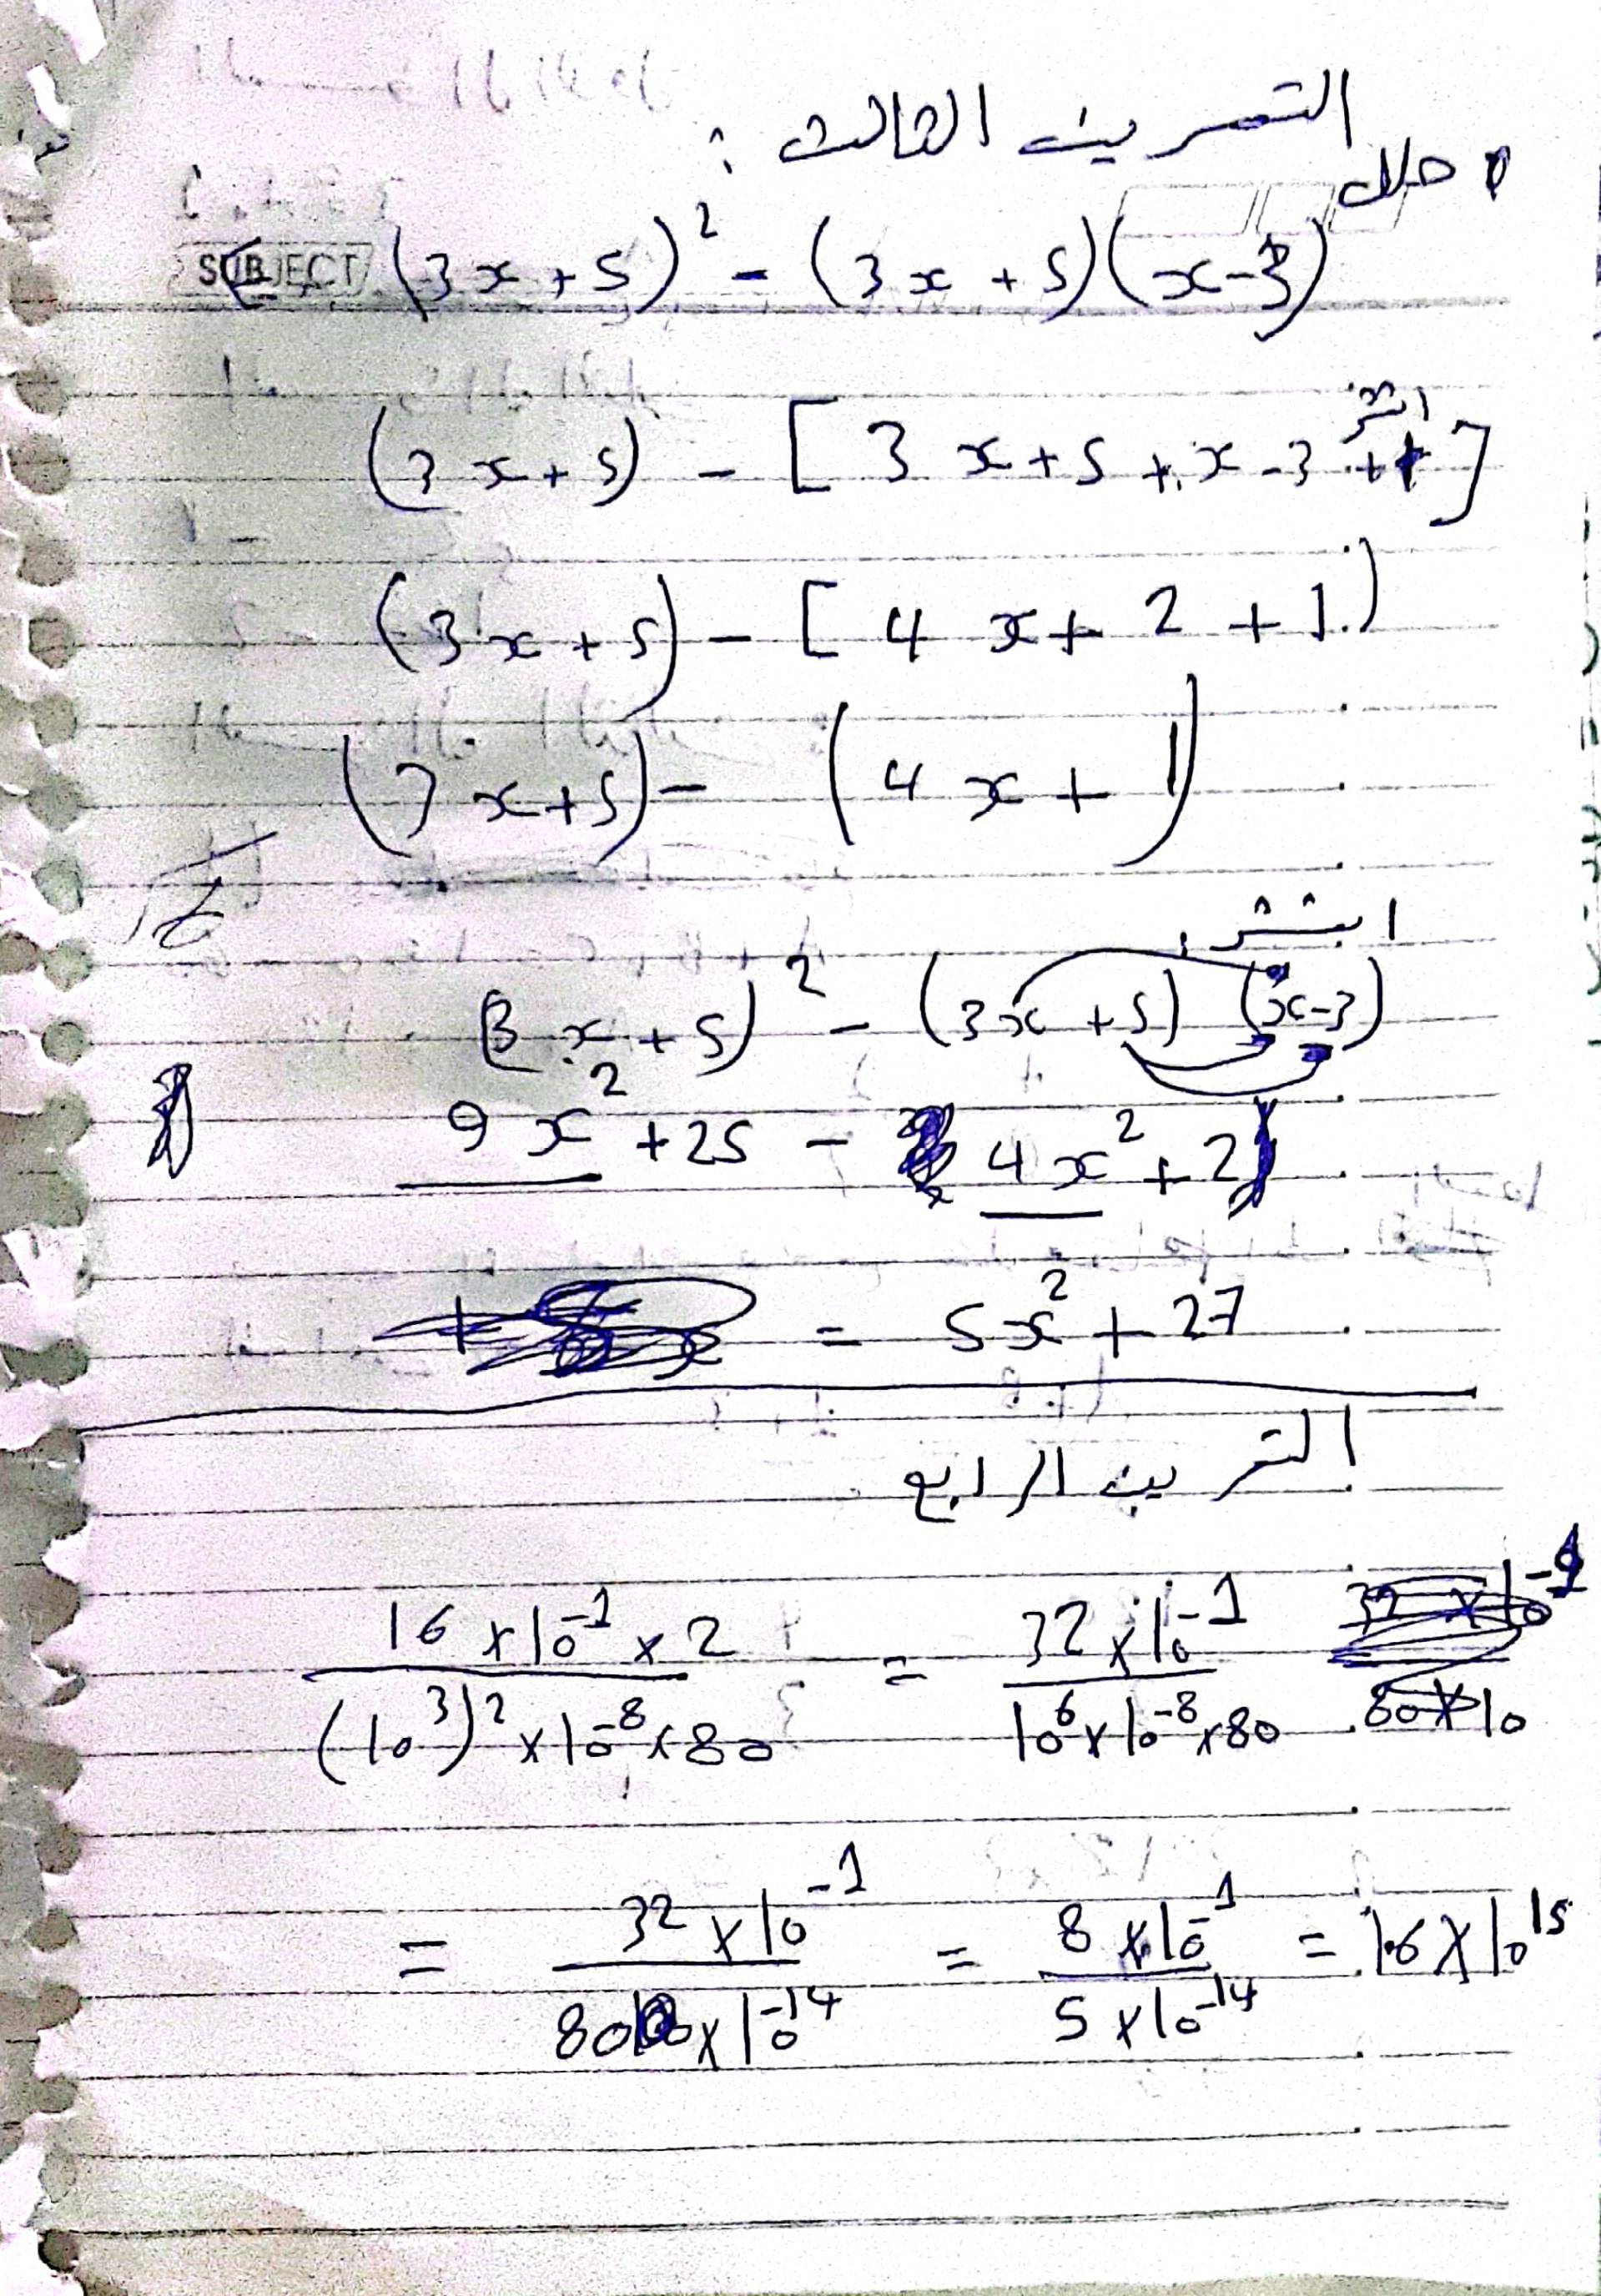 التمرين الثالث :
حلل
SUBJECT (3x+5)² - (3x+5)(x-3)
(3x+5) - [3x+5+x-3+1]
(3x+5) - [4x+2+1)
(3x+5) - (4x+1)
انشر
(3x+5)² - (3x+5)(x-3)
9x²+25 - 4x²+2
= 5x²+27
التمرين الرابع
16x10⁻¹x2 / (10³)²x10⁻⁸x80 = 32x10⁻¹ / 10⁶x10⁻⁸x80
= 32x10⁻¹ / 80x10⁻¹⁴ = 8x10⁻¹ / 5x10⁻¹⁴ = 1.6x10¹⁵